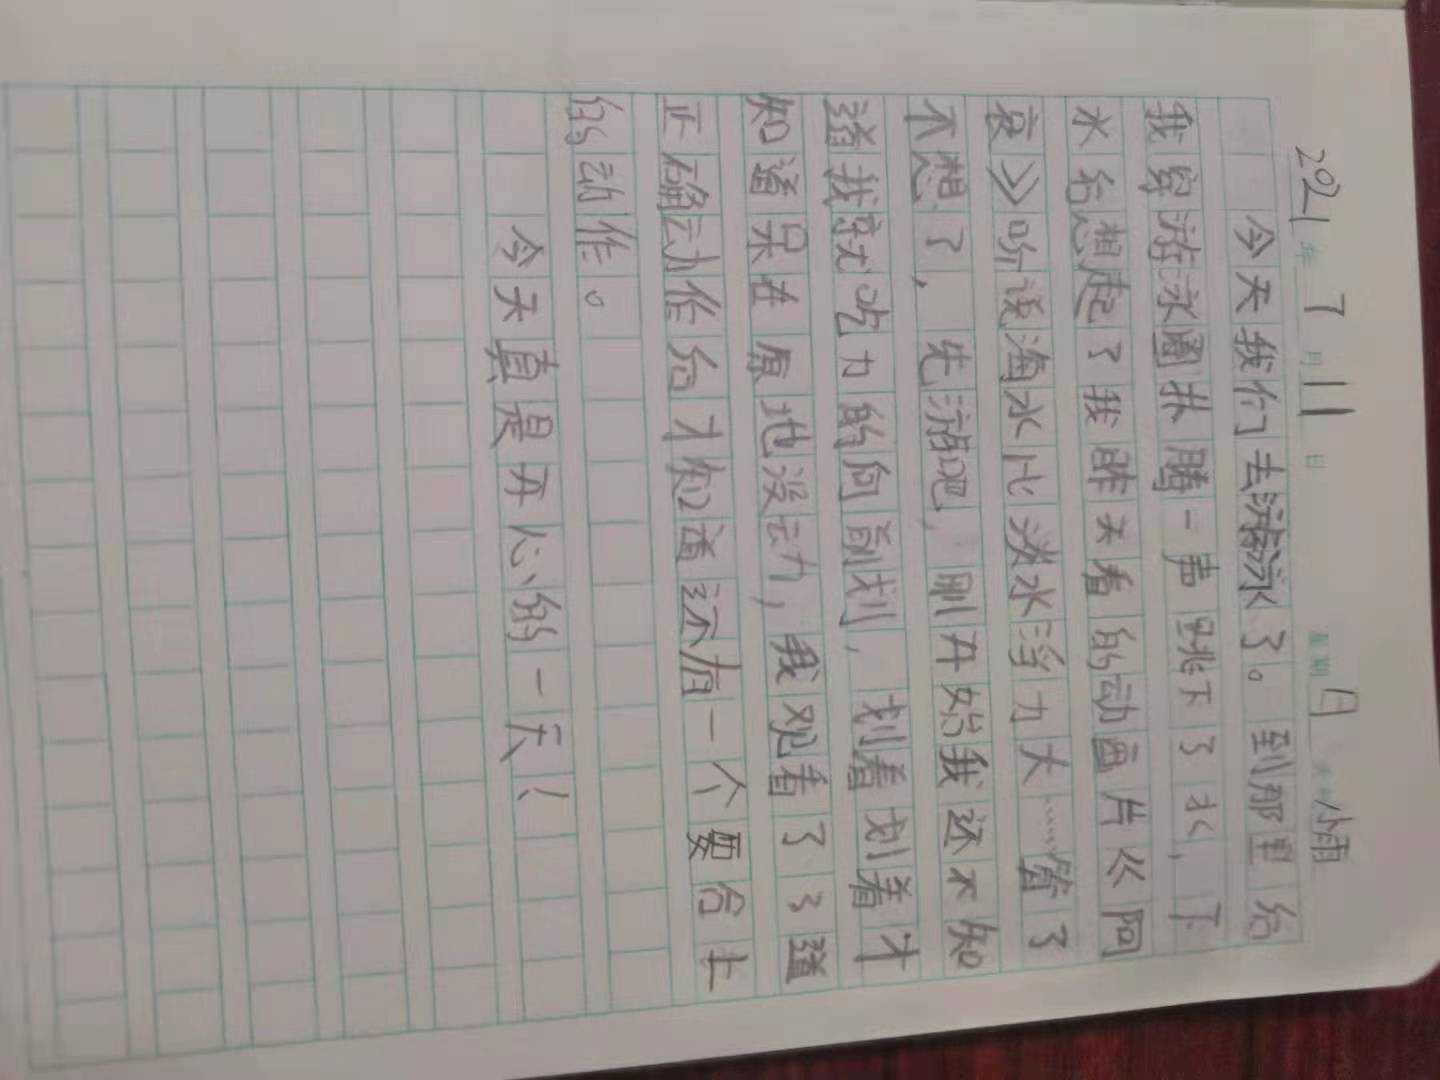 2021年7月11日 星期日 天气小雨
今天我们去游泳了。到那里给
我穿游泳圈扑腾一声跳下了水，下
水给想起了我昨天看的动画片《阿
衰》听说海水比淡水浮力大……管了
不想了，先游吧，刚开始我还不知
道我就吃力的向前划，划着划着才
知道呆在原地没动，我观看了了道
正确动作给才知道还有一个要合上
的动作。
今天真是开心的一天！